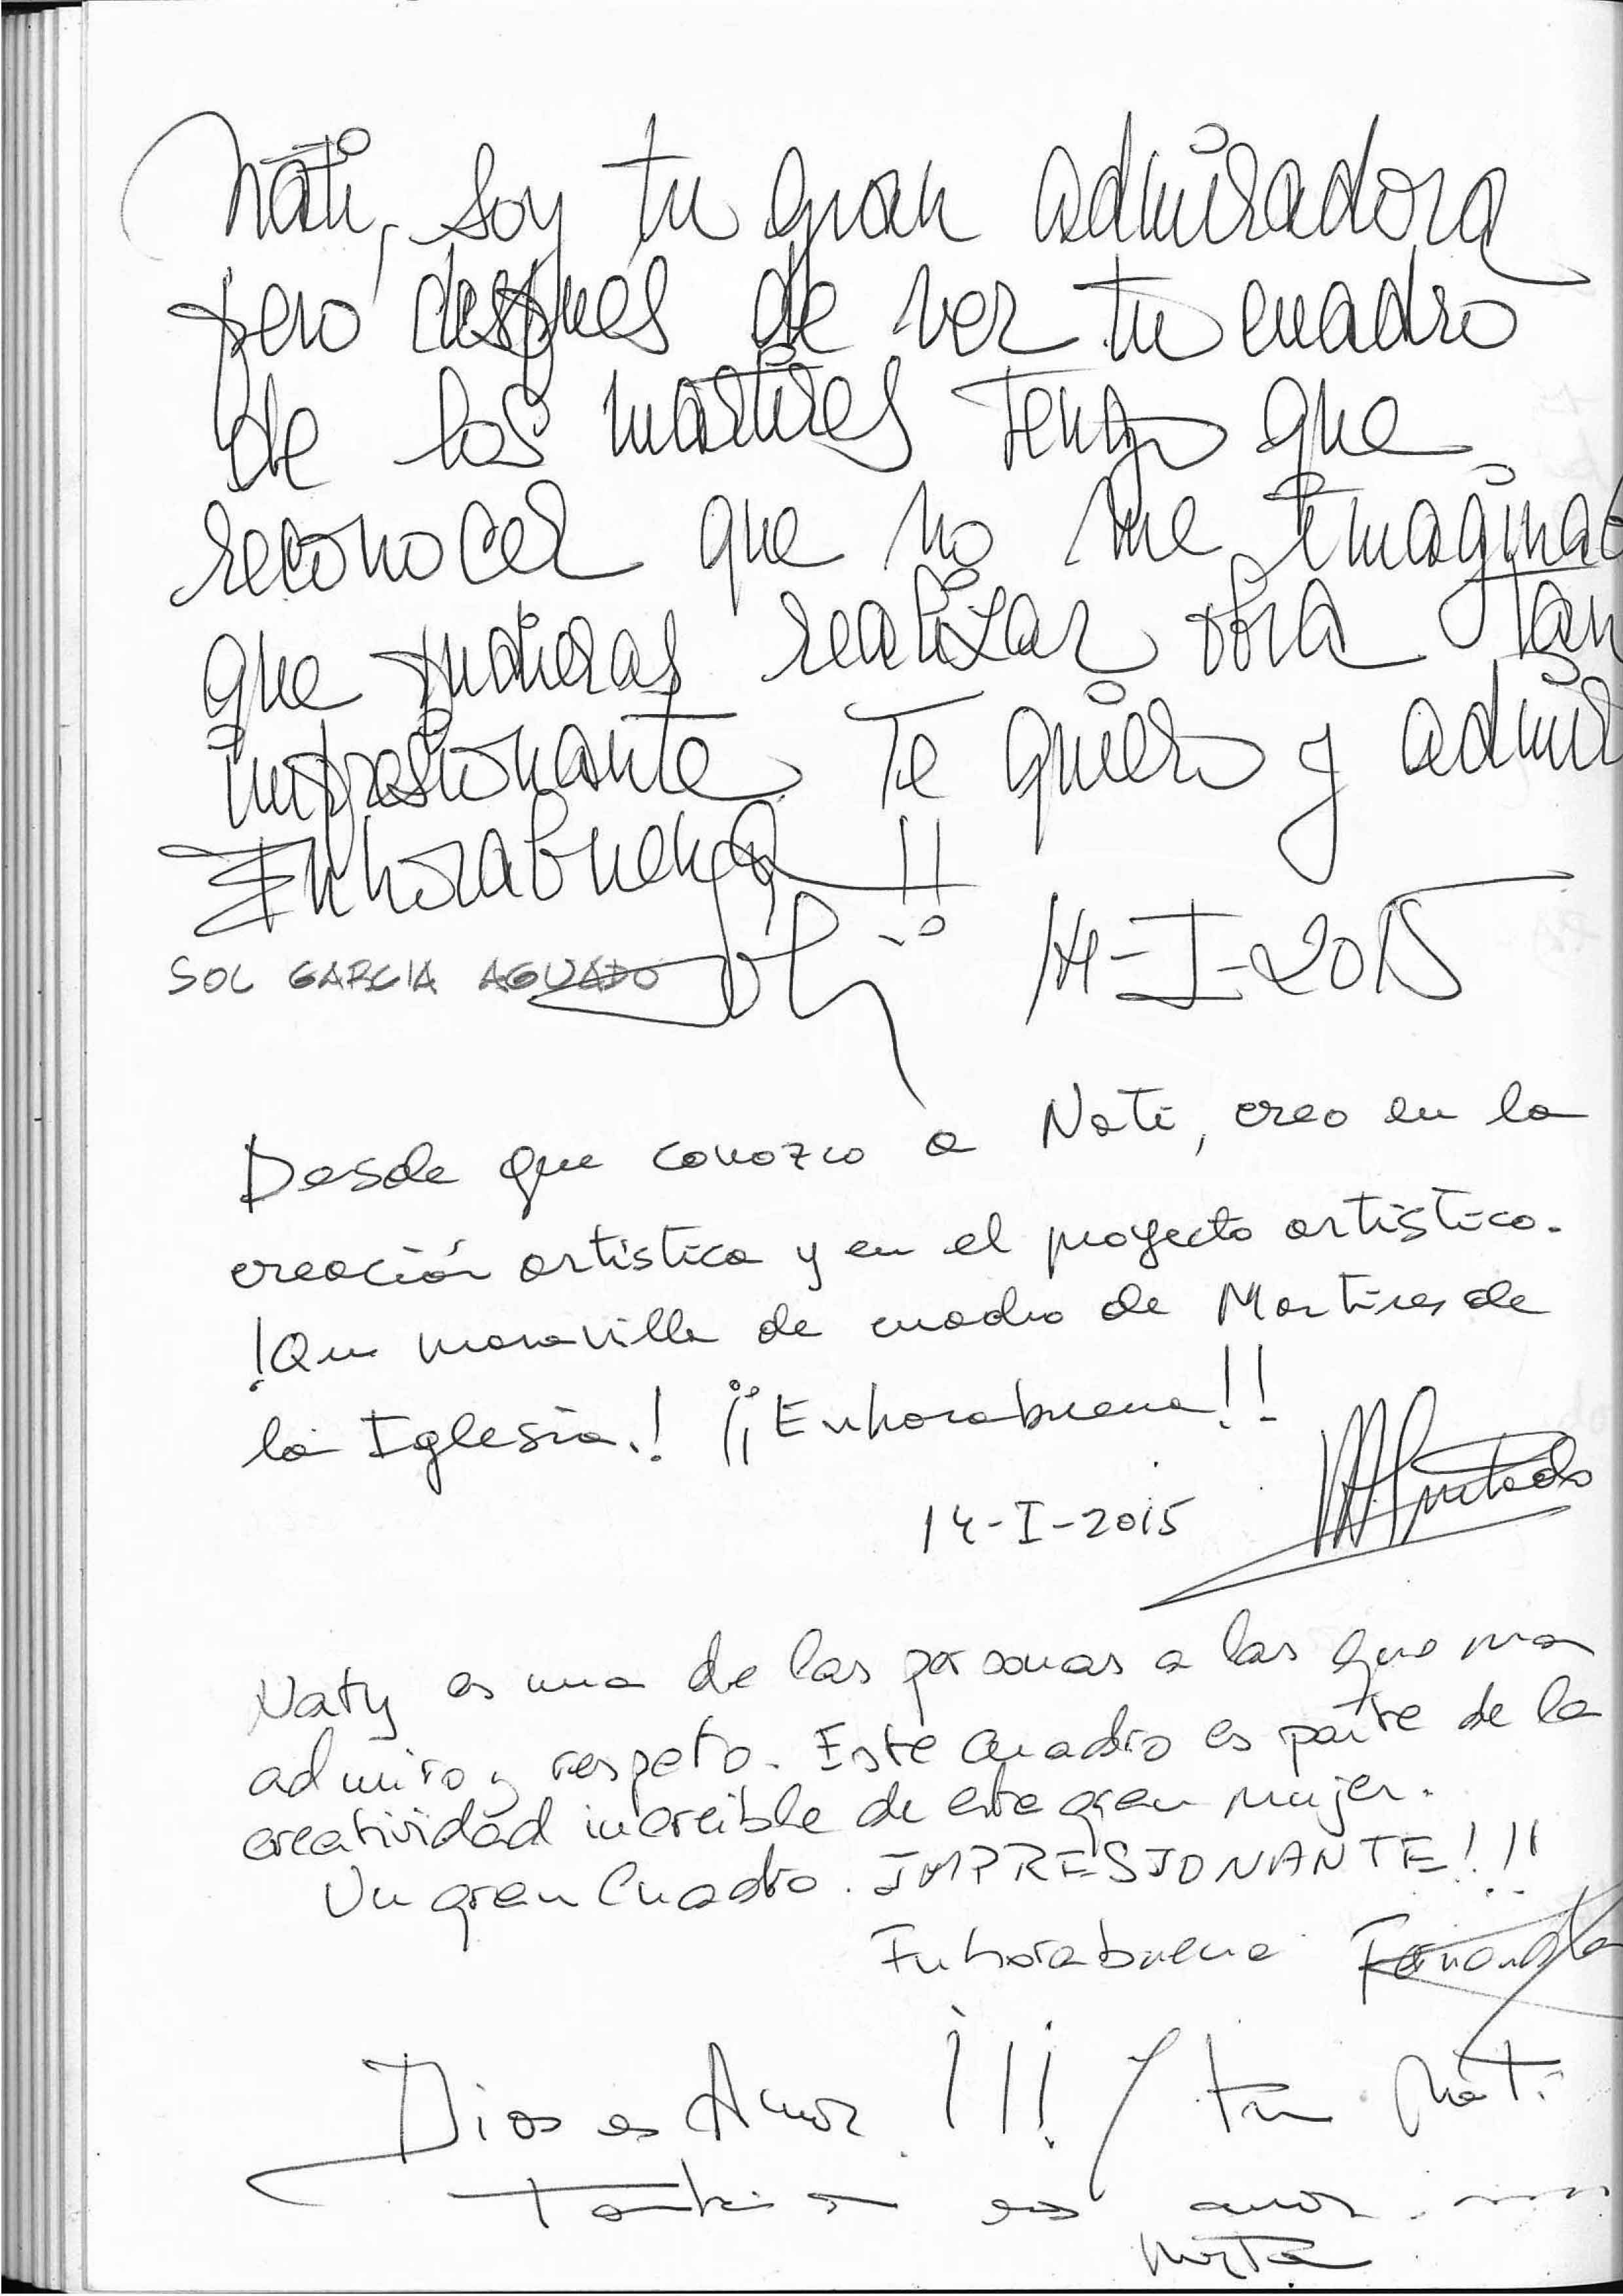 Nati, soy tu gran admiradora
pero después de ver tu cuadro
de los martires tengo que
reconocer que no me imaginab
que pudieras realizar obra tan
impresionante. Te quiero y admir
Enhorabuena!!
SOL GARCIA AGUADO Sol 14-I-2015
Desde que conozco a Nati, creo en la
creación artística y en el proyecto artístico.
¡Que maravilla de cuadro de Martires de
la Iglesia.! ¡¡Enhorabuena!!
14-I-2015 Hurtado
Naty es una de las personas a las que mas
admiro y respeto. Este cuadro es parte de la
creatividad increible de este gran mujer.
Un gran Cuadro. IMPRESIONANTE!!!
Enhorabuena Fernanda
Dios es Amor !!! Y tu Nati
también eres amor